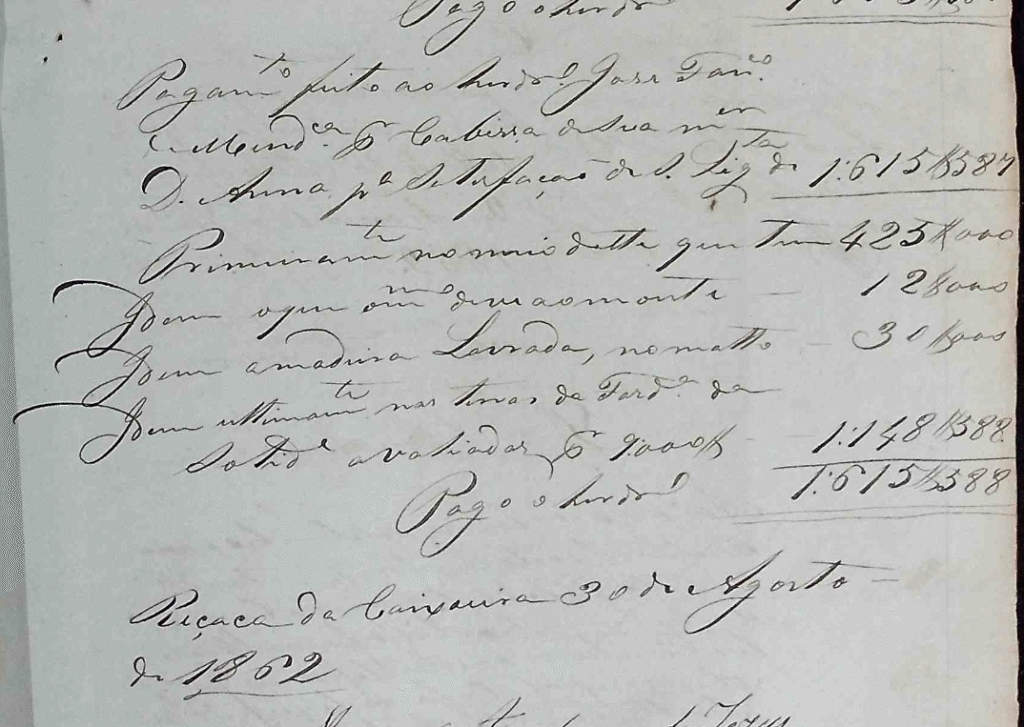 Pago o herdrº
Pagamto feito ao herdrº Jose Franº
de Mendça pr Cabessa de sua mer
D. Anna pª Satisfação de S. Ligta de 1:615$587
Primeiramte no meio dette que tem 425$000
Idem o que o mmo deve ao monte — 12$000
Idem a madeira Lavrada, no matto — 30$000
Idem ultimamte nas terras da Fazdª da
Solide avaliadas pr 9.000$ — 1:148$588
Pago o herdrº 1:615$588
da Caixoeira 30 de Agosto —
de 1862